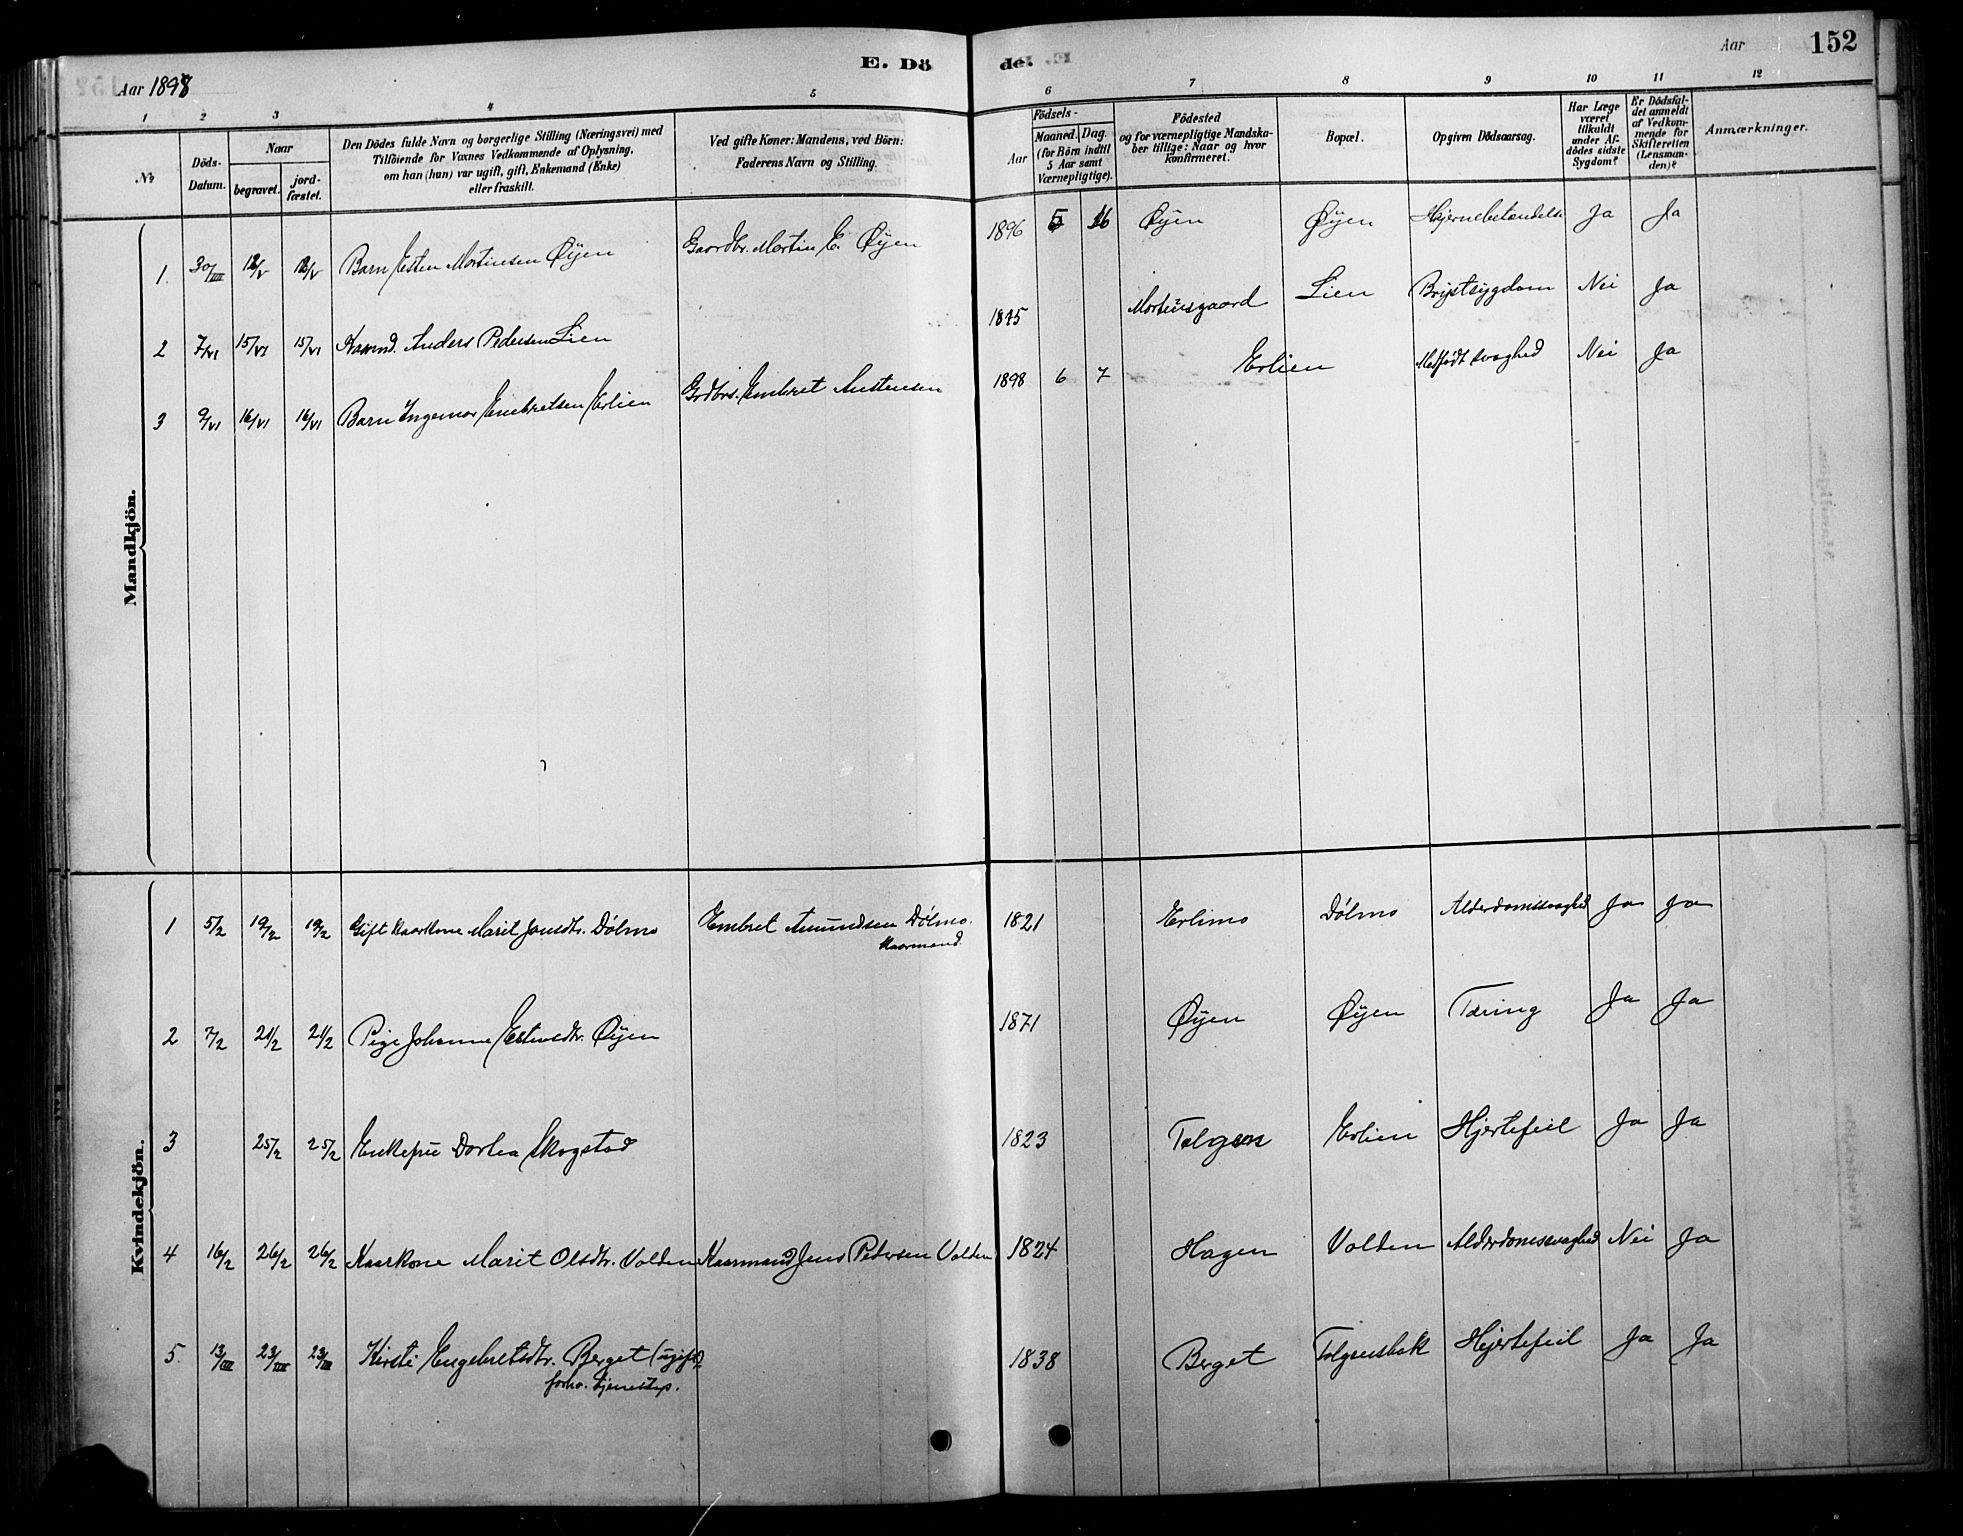 E. Döde.
Aar 1898
Aar 152
1 2 3 4 5 6 7 8 9 10 11 12
No.
Döds-Datum.
Naar
begravet.
jord-fæstet.
Den Dödes fulde Navn og borgerlige Stilling (Næringsvei) med
Tilföiende for Voxnes Vedkommende af Oplysning,
om han (hun) var ugift, gift, Enkemand (Enke)
eller fraskilt.
Ved gifte Koner: Mandens, ved Börn:
Faderens Navn og Stilling.
Födsels-
Aar
Maaned. Dag.
(for Börn indtil
5 Aar samt
Værnepligtige).
Födested
og for værnepligtige Mandska-
ber tillige: Naar og hvor
konfirmeret.
Bopæl.
Opgiven Dödsaarsag.
Har Læge
været
tilkaldt
under Af-
dödes sidste
Sygdom?
Er Dödsfal-
det anmeldt
af Vedkom-
mende for
Skifteretten
(Lensman-
den)?
Anmærkninger.
Mandkjön.
1 30/III 12/V 12/V Barn Esten Martinsen Øyen Gaardbr. Martin E. Øyen 1896 5 16 Øyen Øyen Hjernebetændelse Ja Ja
2 7/VI 15/VI 15/VI Kaarmd. Anders Pedersen Lien 1815 Mortensgaard Lien Brystsygdom Nei Ja
3 9/VI 16/VI 16/VI Barn Ingemar Embretsen Erlien Grdbrs. Embret Austensen 1898 6 7 Erlien Medfødt svaghed Nei Ja
Kvindekjön.
1 5/2 19/2 19/2 Gift Kaarkone Marit Jonsdtr. Dølmo Embret Amundsen Dølmo. 1821 Erlimo Dølmo Alderdomssvaghed Ja Ja
Kaarmand.
2 7/2 21/2 21/2 Pige Johanne Estensdtr. Øyen 1871 Øyen Øyen Tæring Ja Ja
3 25/2 25/2 Enkefru Dortea Skogstad 1823 Tolgen Erlien Hjertefeil Ja Ja
4 16/2 26/2 26/2 Kaarkone Marit Olsdtr. Volden Kaarmand Jens Pedersen Volden 1824 Hagen Volden Alderdomssvaghed Nei Ja
5. 13/III 23/III 23/III Kirsti Engebretsdtr. Berget (ugift) 1838 Berget Hjertefeil Ja Ja
forhv. tjenestep.